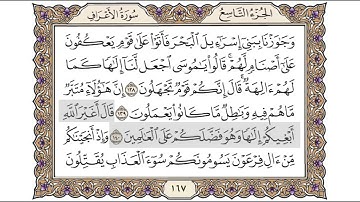 الجزء التاسع
سورة الأعراف
وَجَٰوَزْنَا بِبَنِىٓ إِسْرَٰٓءِيلَ ٱلْبَحْرَ فَأَتَوْا۟ عَلَىٰ قَوْمٍ يَعْكُفُونَ
عَلَىٰٓ أَصْنَامٍ لَّهُمْ ۚ قَالُوا۟ يَٰمُوسَى ٱجْعَل لَّنَآ إِلَٰهًا كَمَا
لَهُمْ ءَالِهَةٌ ۚ قَالَ إِنَّكُمْ قَوْمٌ تَجْهَلُونَ ١٣٨ إِنَّ هَٰٓؤُلَآءِ مُتَبَّرٌ
مَّا هُمْ فِيهِ وَبَٰطِلٌ مَّا كَانُوا۟ يَعْمَلُونَ ١٣٩ قَالَ أَغَيْرَ ٱللَّهِ
أَبْغِيكُمْ إِلَٰهًا وَهُوَ فَضَّلَكُمْ عَلَى ٱلْعَٰلَمِينَ ١٤٠ وَإِذْ أَنجَيْنَٰكُم
مِّنْ ءَالِ فِرْعَوْنَ يَسُومُونَكُمْ سُوٓءَ ٱلْعَذَابِ يُقَتِّلُونَ
١٦٧